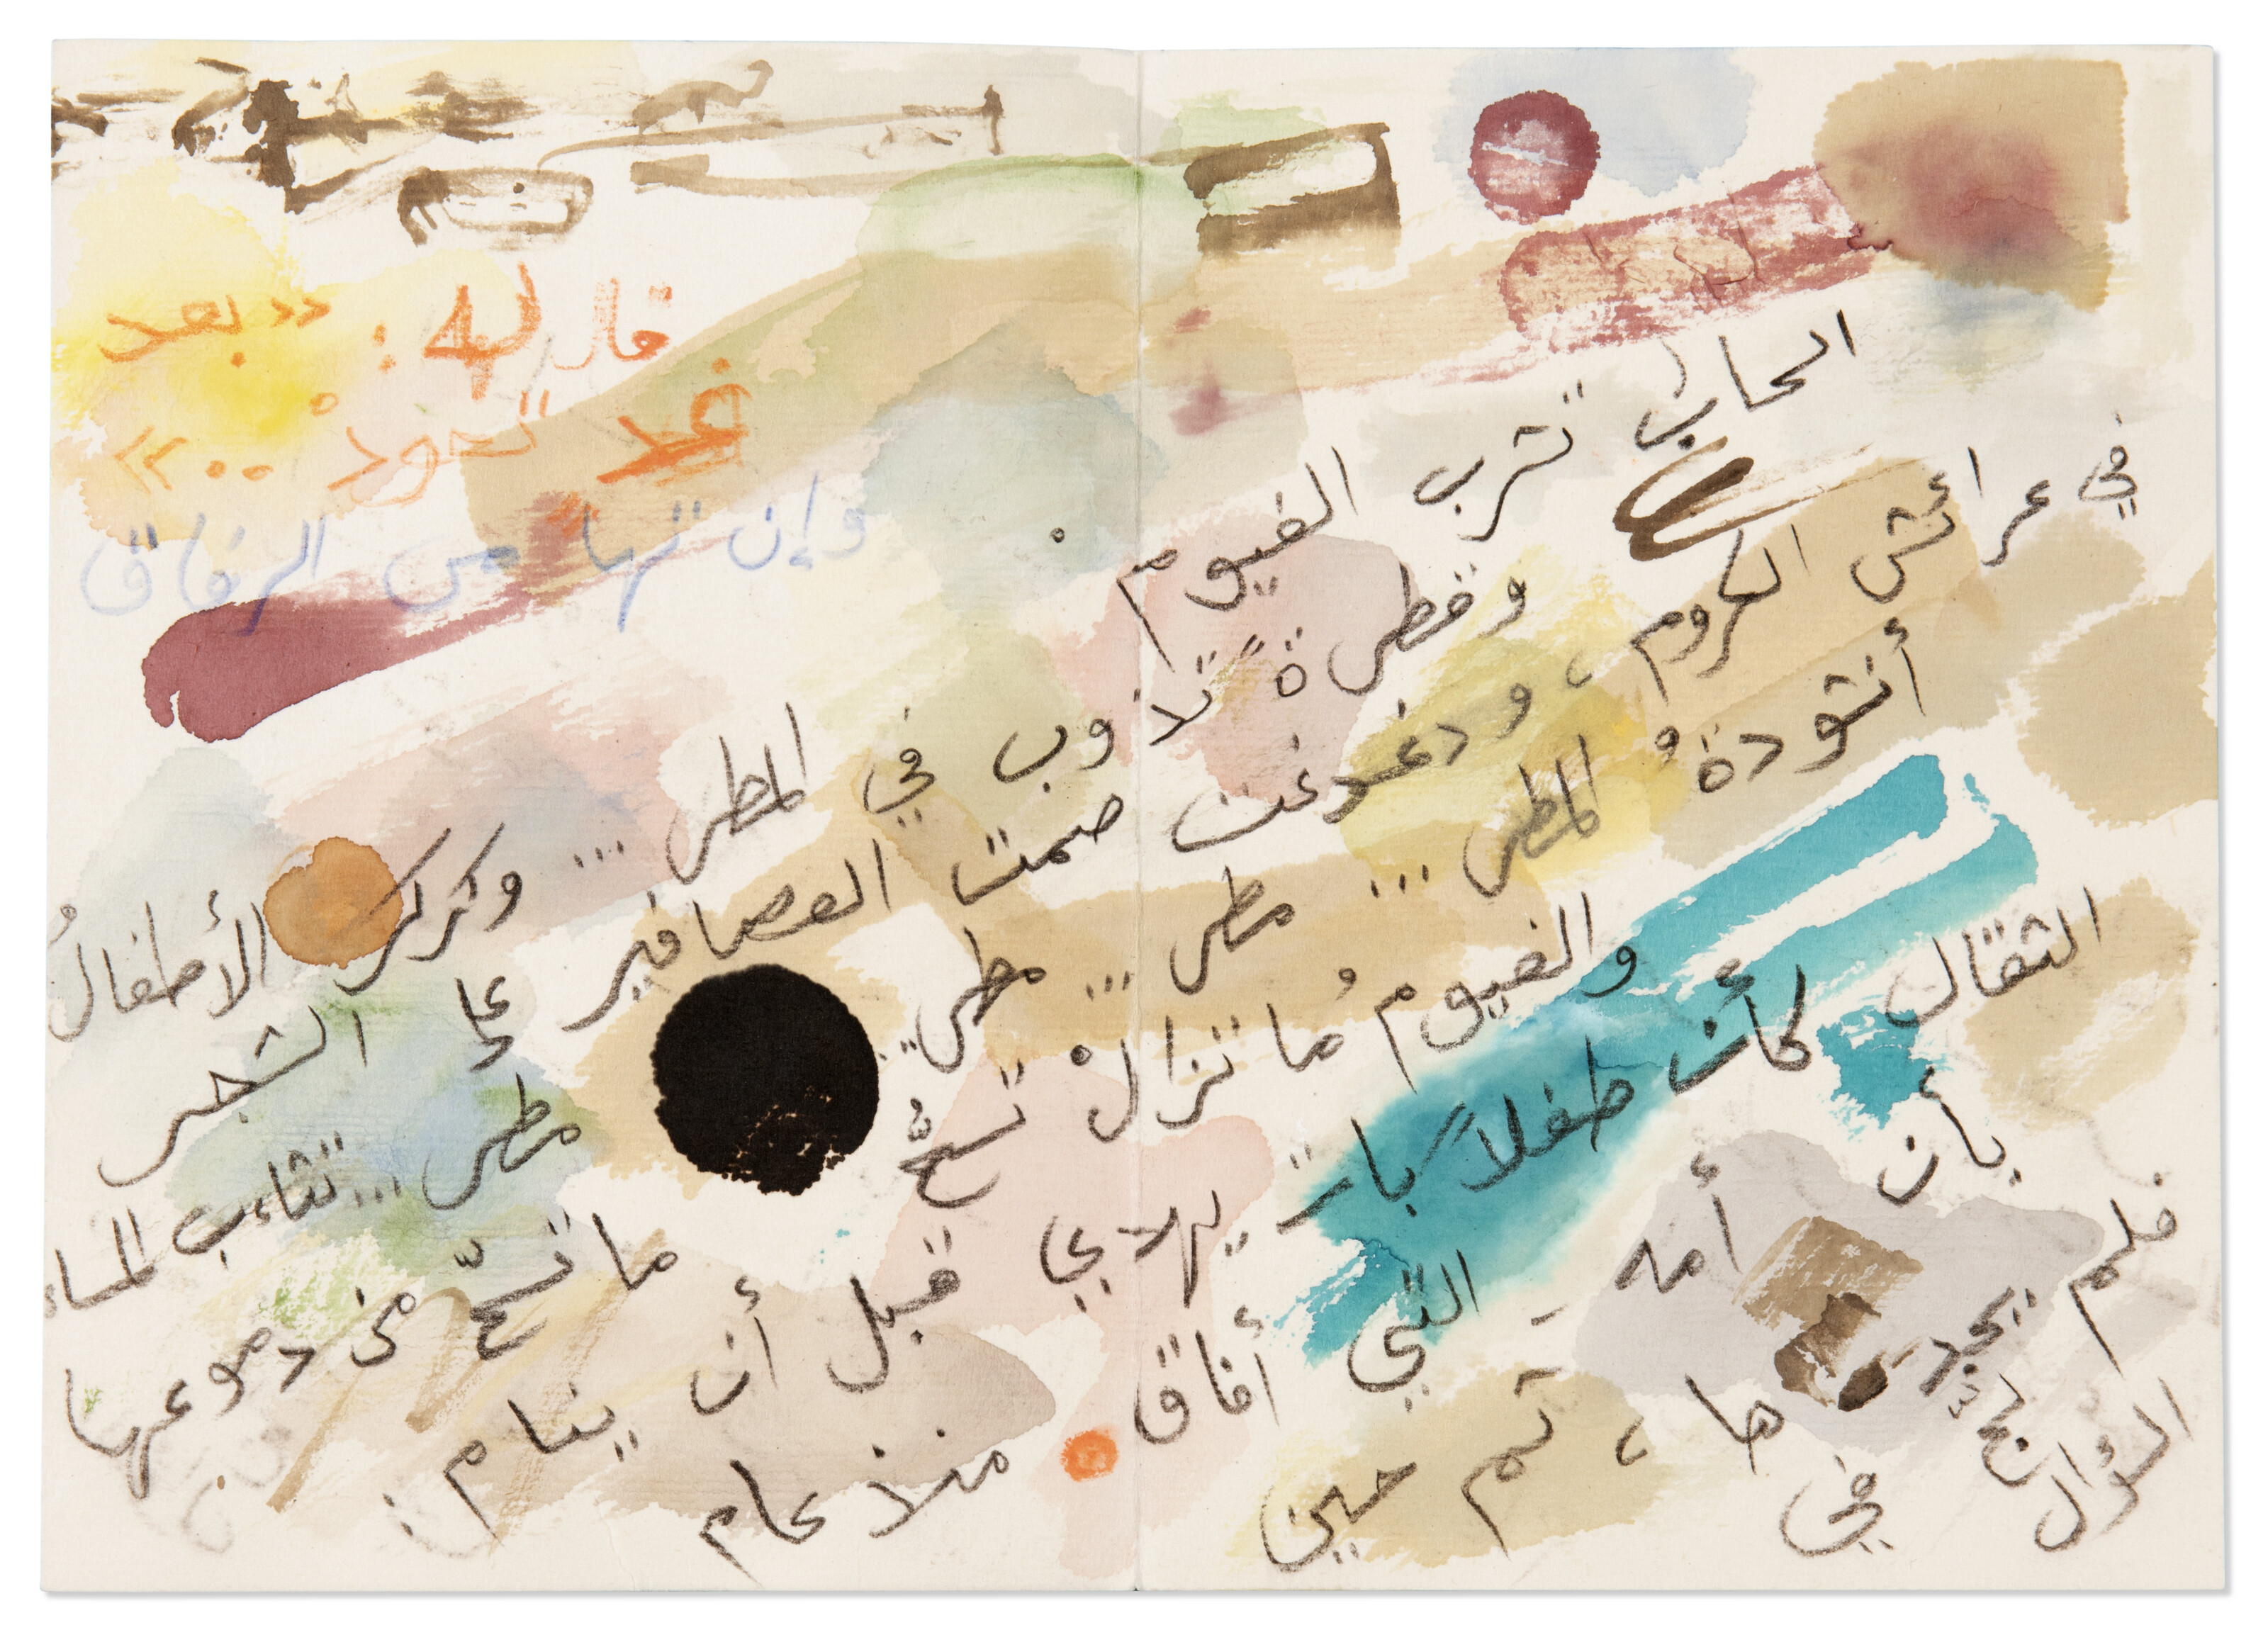 السحاب تشرب الغيوم
وقطرةً تذوب في المطر ... وكركر الأطفالُ
في عرائش الكروم ، ودغدغت صمت العصافير على الشجر
أنشودةُ المطر ... مطر ... مطر .. مطر ... تثاءب المساء
والغيومُ ما تزالْ تسحُّ ما تسحّ من دموعها
الثقال كأن طفلاً بات يهذي قبل أن ينام :
بأن أمه - التي أفاق منذ عام
فلم يجدها ، ثم حين
لجّ في السؤال
قال له : «بعد
غد تعودْ ..»
وإن تهامس الرفاق